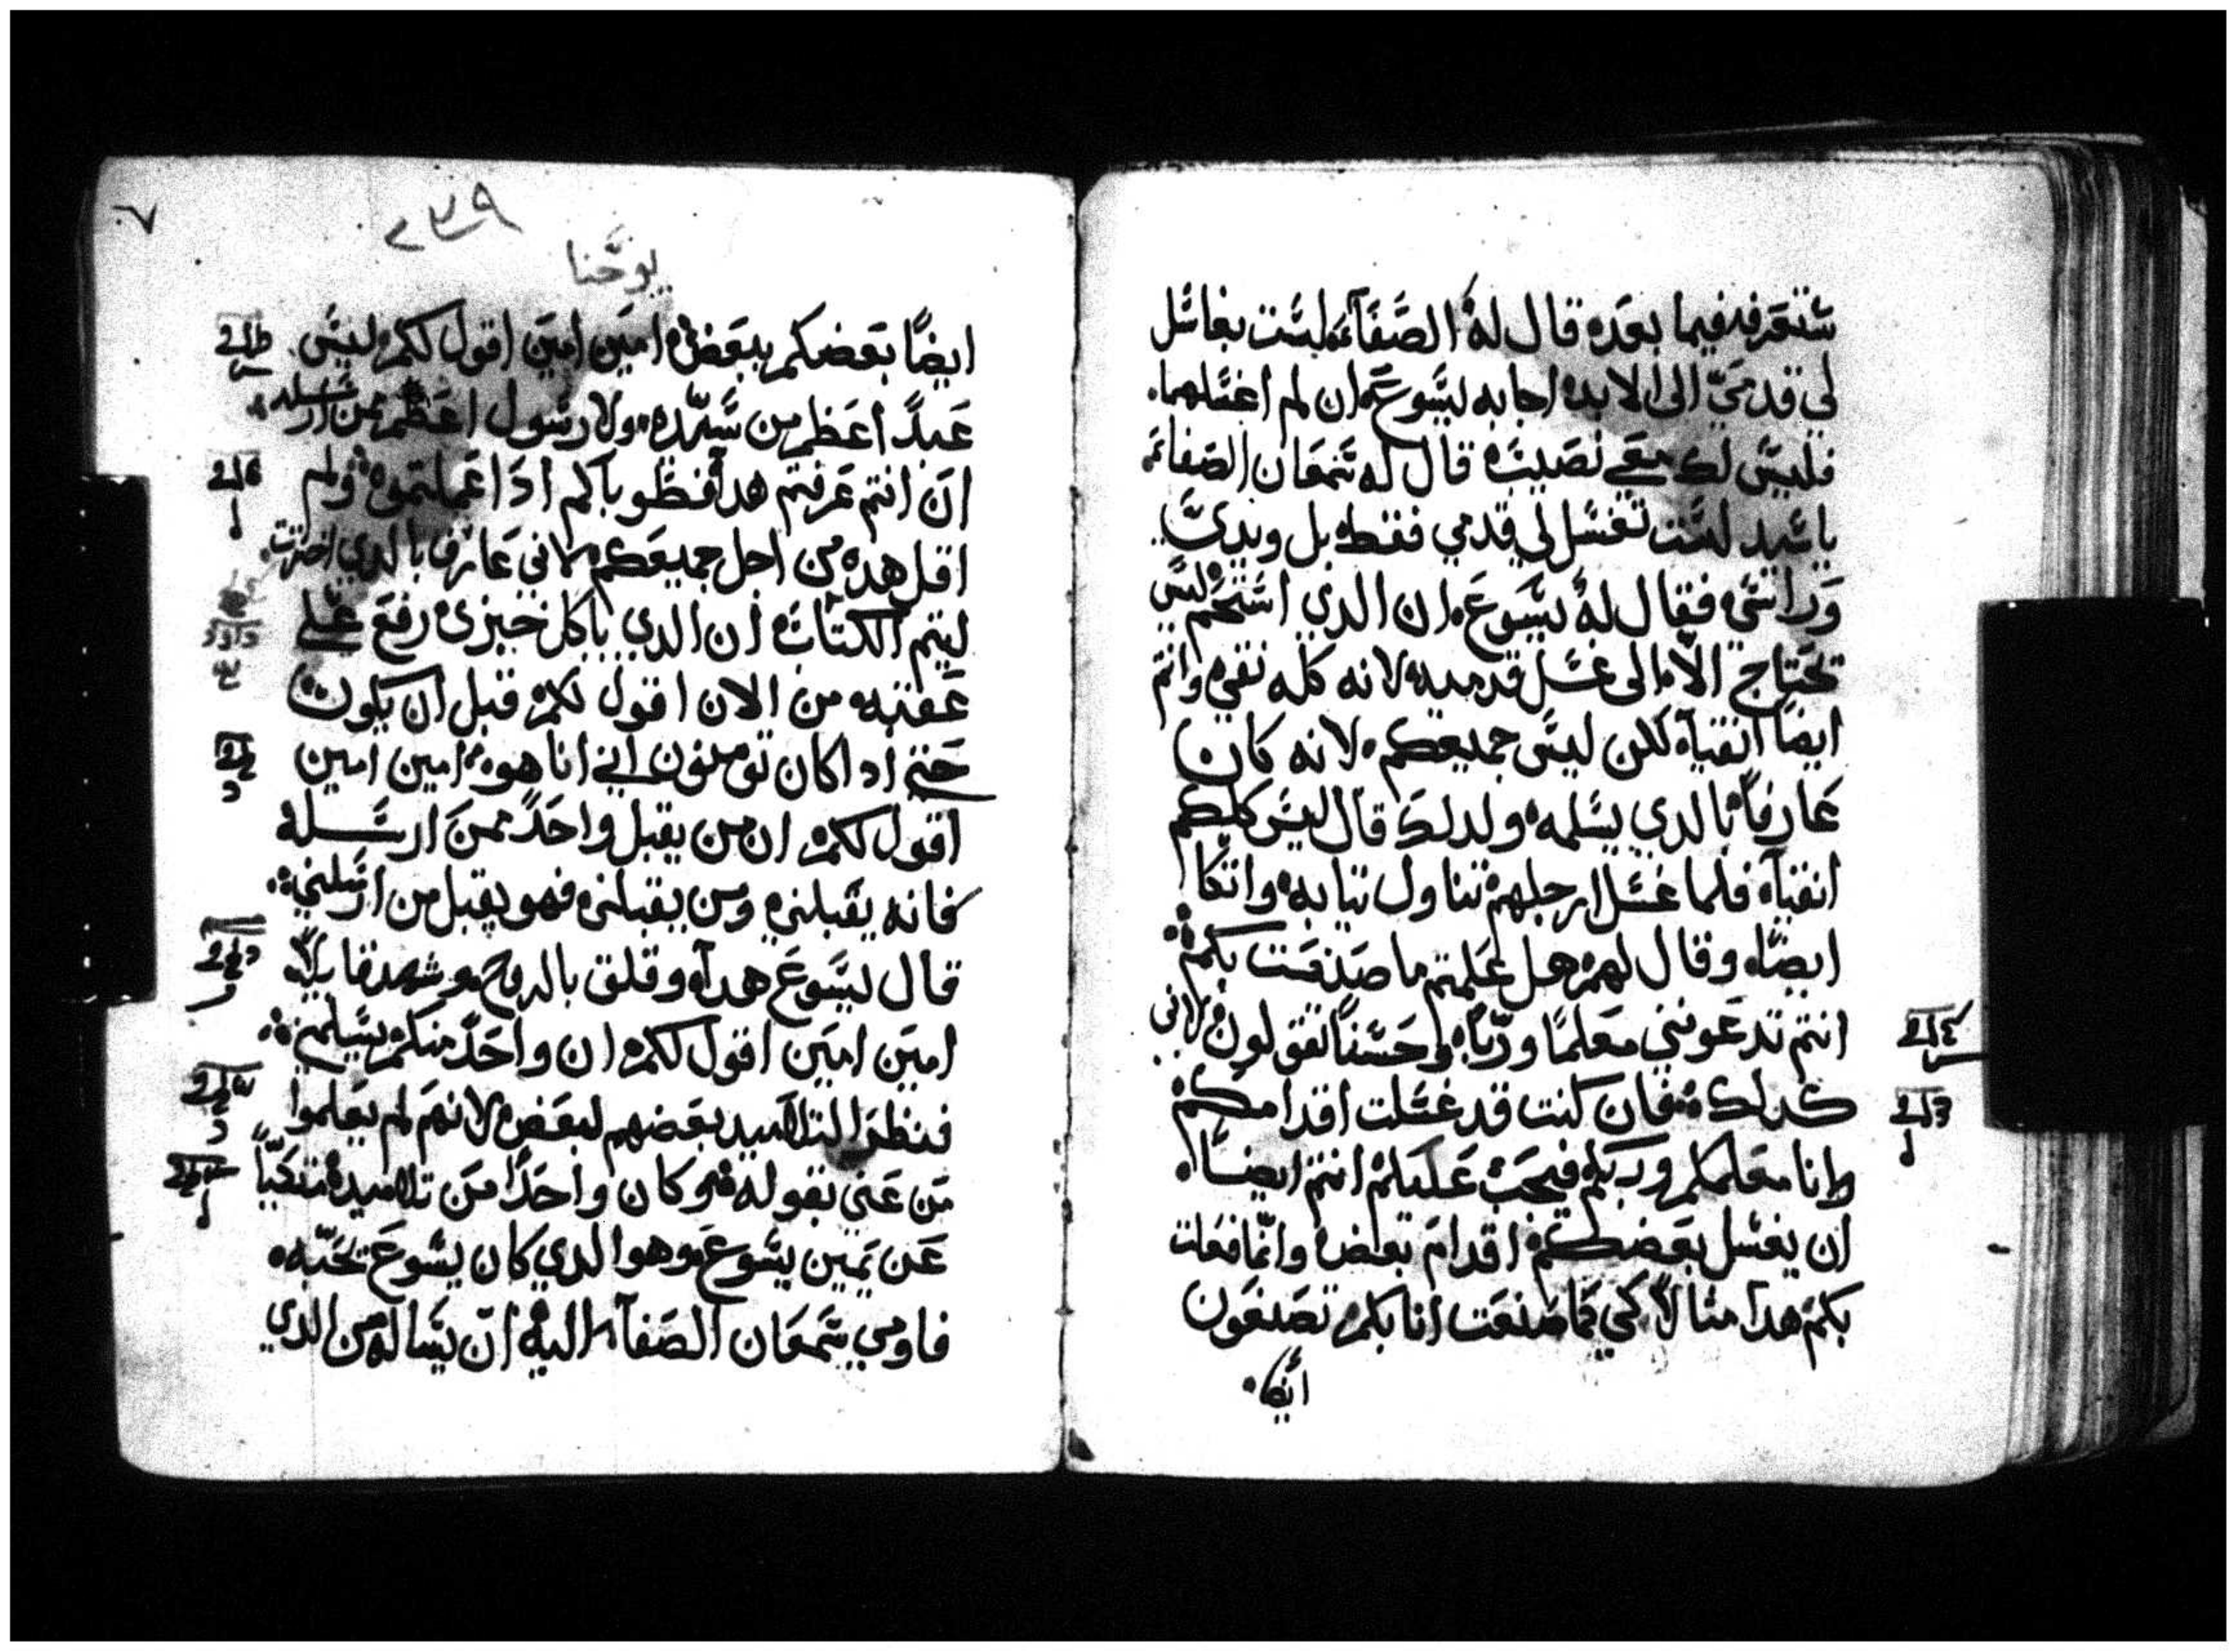 ستعرفه فيما بعده قال له الصفاء لست بغاسل
لي قدميّ الى الابد اجابه ليسوع ان لم اغسلهما
فليس لك معي نصيب قال له شمعان الصفاء
ياسيد لست تغسل لي قدمي فقط بل ويديّ
وراسي فقال له يسوع ان الدي استحم ليس
يحتاج الا الى غسل قدميه لانه كله نقي وانتم
ايضا انقياء لكن ليس جميعكم لانه كان
عارفاً بالدي يسلمه ولدلك قال ليس كلكم
انقياء فلما غسل ارجلهم تناول تيابه واتكا
ايضاً وقال لهم هل علمتم ما صنعت بكم
انتم تدعونني معلمًا وربًا وحسنًا تقولون لاني
كدلك فان كنت قد غسلت اقدامكم
وانا معلمكم وربكم فيجب عليكم انتم ايضًا
ان يغسل بعضكم اقدام بعض وانما فعلت
بكم هدا مثالاً كي كما صنعت انا بكم تصنعون
ايضا
٢٣٩
يوحنا
ايضًا بعضكم ببعض امين امين اقول لكم ليس
عبدً اعظم من سيّده ولا رسول اعظم ممن ارسله
ان انتم عرفتم هدا فطوباكم ادا عملتموه ولم
اقل هده من اجل جميعكم لاني عارف بالدي اخترت
ليتم الكتاب ان الدي ياكل خبزي رفع علي
عقبه من الان اقول لكم قبل ان يكون
حتي ادا كان تومنون اني انا هو امين امين
اقول لكم ان من يقبل واحدً ممن ارسله
فانه يقبلني ومن يقبلني فهو يقبل من ارسلني
قال ليسوع هدا وقلق بالروح وشهد قايلاً
امين امين اقول لكم ان واحدً منكم يسلمني
فنظر التلاميد بعضهم لبعض لانهم لم يعلموا
من عني بقوله وكان واحدًا من تلاميده متكيًا
عن يمين يسوع وهو الدي كان يسوع يحبه
فاومي شمعان الصفا اليه ان يساله من الدي